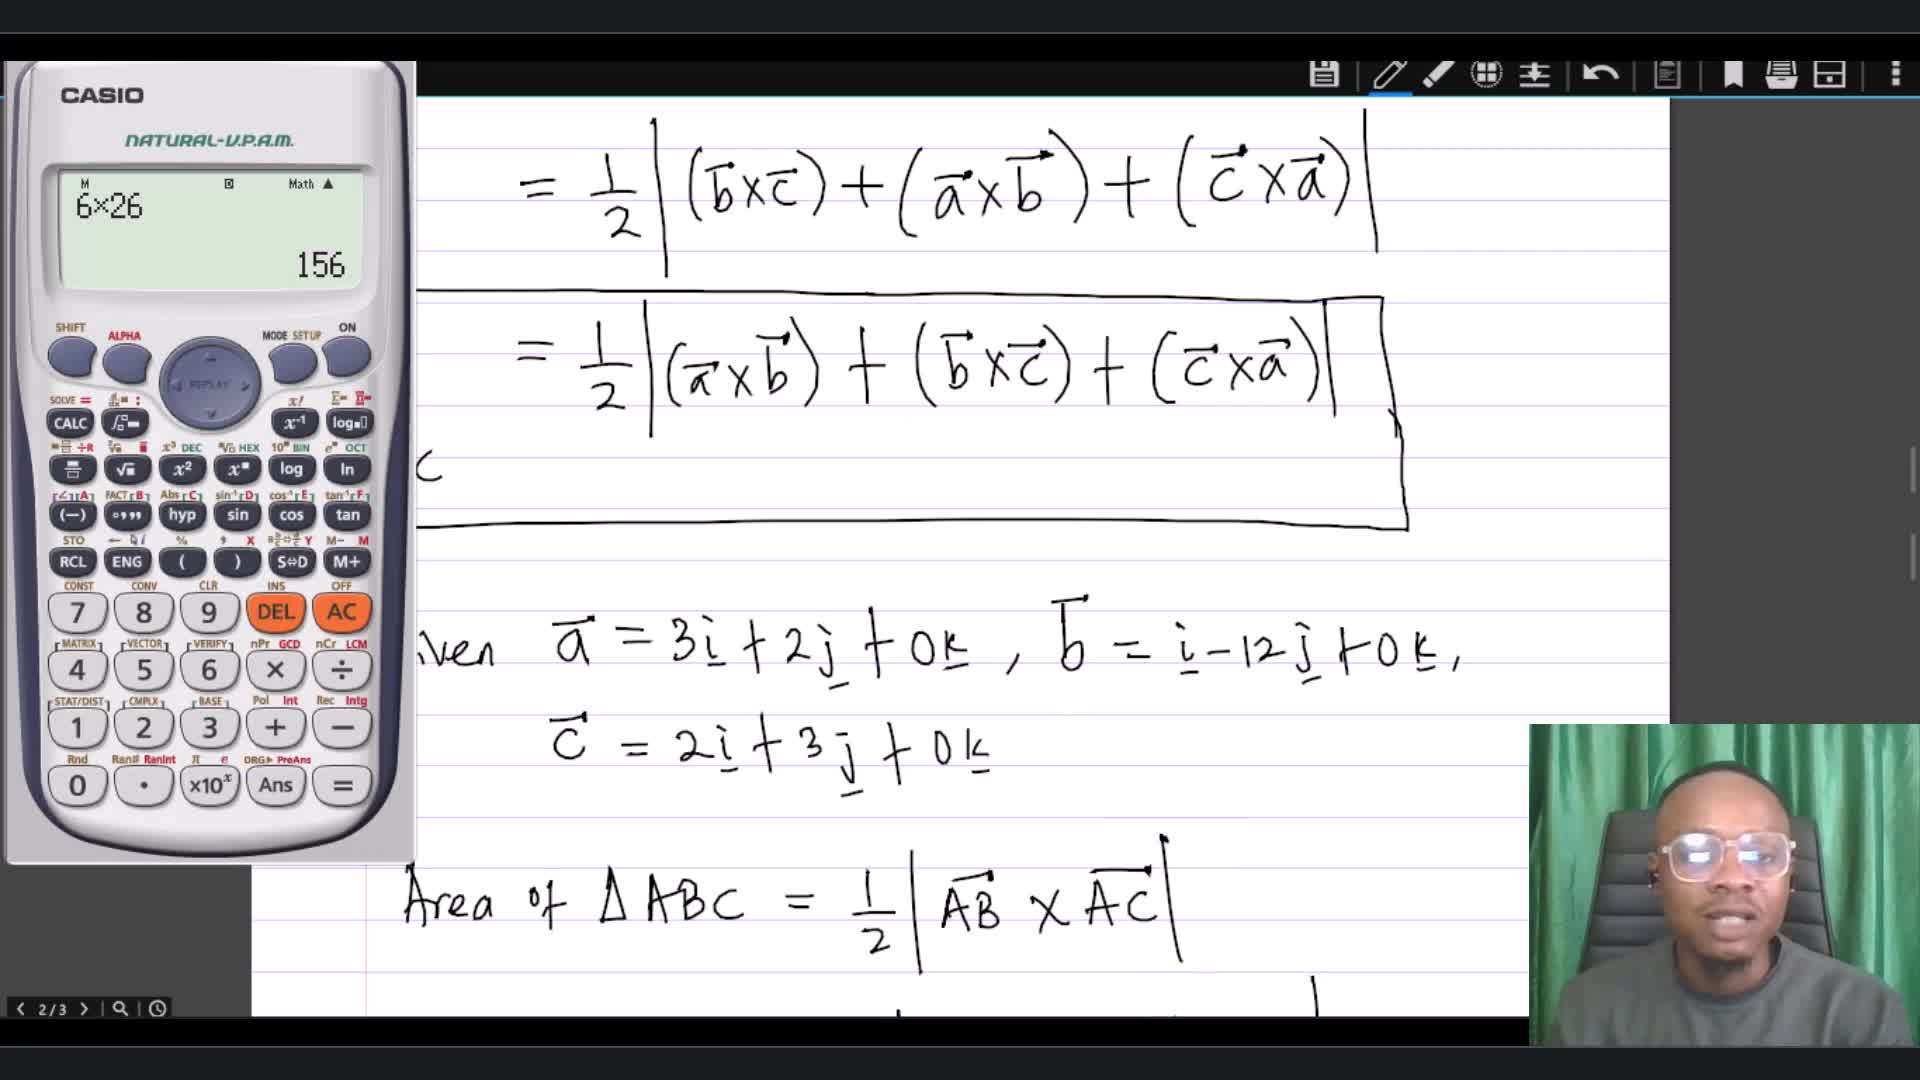 CASIO
NATURAL-V.P.A.M.
M D Math ▲
6×26
156
SHIFT ALPHA MODE SETUP ON
REPLAY
SOLVE = : x!
CALC x⁻¹ log
÷R x³ DEC HEX 10 BIN e OCT
√ x² x log ln
A FACT B Abs C sin⁻¹ D cos⁻¹ E tan⁻¹ F
(−) hyp sin cos tan
STO ← i % , X Y M− M
RCL ENG ( ) S⇔D M+
CONST CONV CLR INS OFF
7 8 9 DEL AC
MATRIX VECTOR VERIFY nPr GCD nCr LCM
4 5 6 × ÷
STAT/DIST CMPLX BASE Pol Int Rec Intg
1 2 3 + −
Rnd Ran# RanInt π e DRG▶ PreAns
0 . ×10ˣ Ans =
= 1/2 |(b⃗×c⃗)+(a⃗×b⃗)+(c⃗×a⃗)|
= 1/2 |(a⃗×b⃗)+(b⃗×c⃗)+(c⃗×a⃗)|
c
iven a⃗ = 3i+2j+0k, b⃗ = i-12j+0k,
c⃗ = 2i+3j+0k
Area of ΔABC = 1/2 |AB⃗ × AC⃗|
2/3